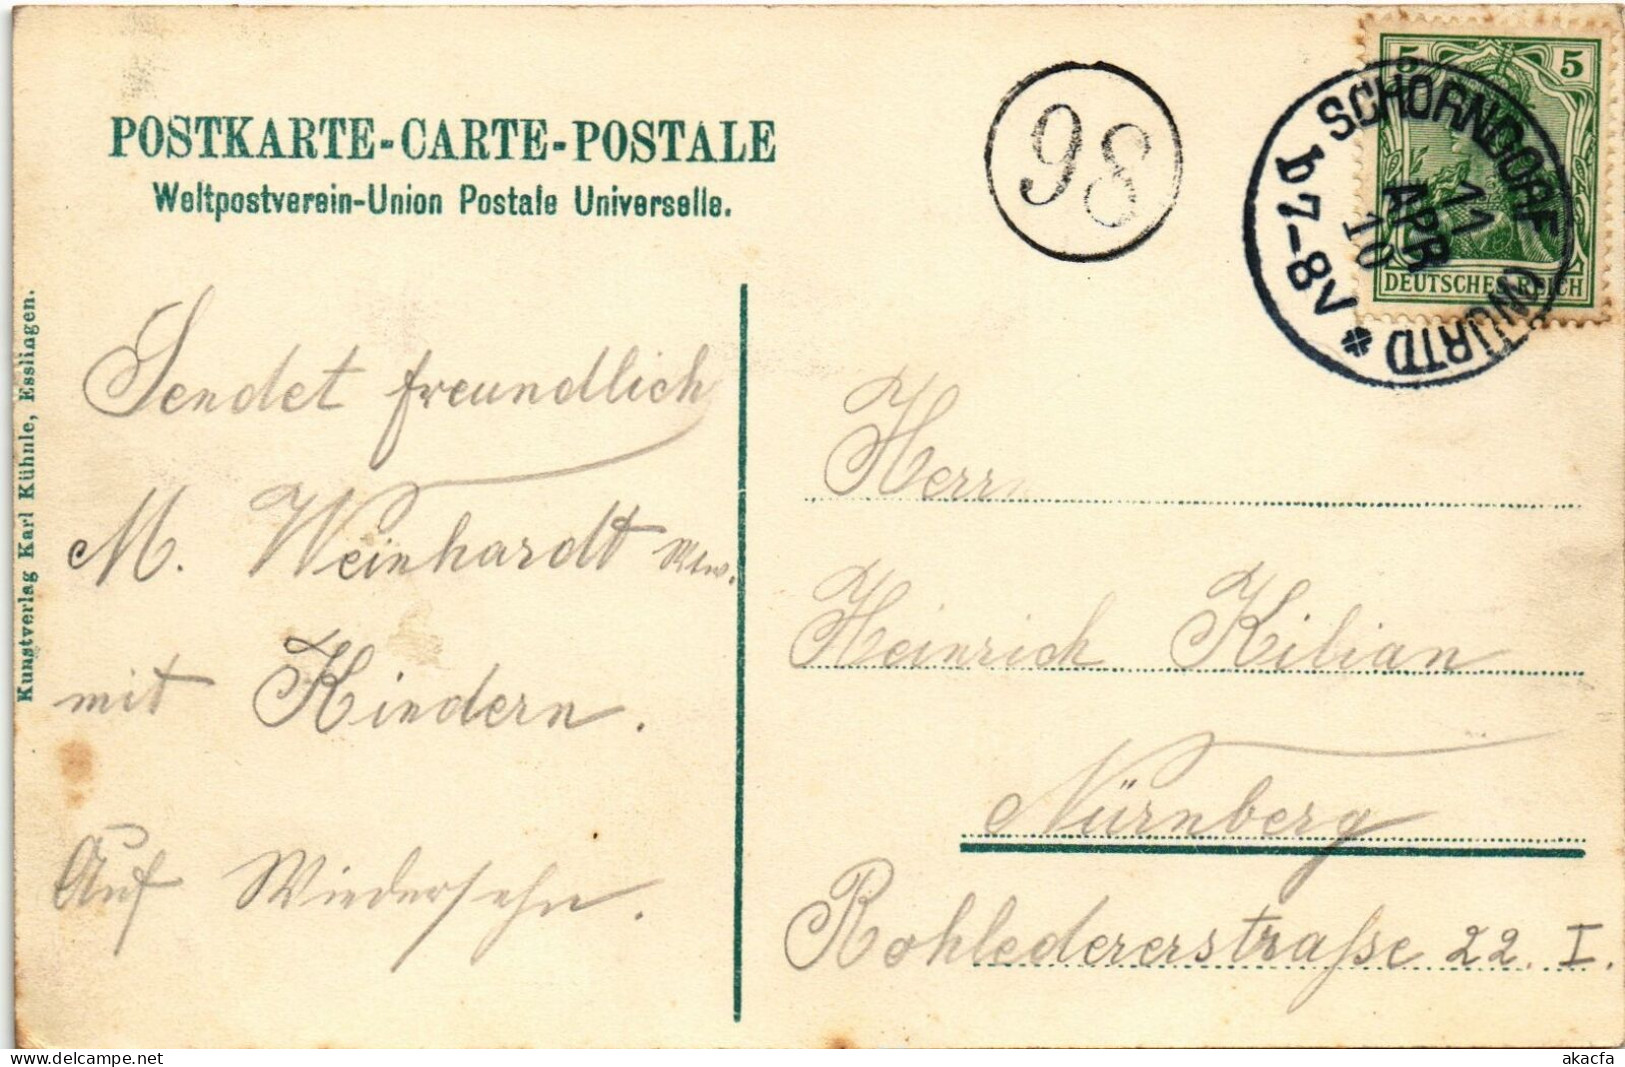 POSTKARTE-CARTE-POSTALE
Weltpostverein-Union Postale Universelle.
98
5 5
DEUTSCHES REICH
SCHORNDORF (WÜRTD
11
APR
10
b 7-8V
Kunstverlag Karl Kühnle, Esslingen.
Sendet freundlich
M. Weinhardt Wtw.
mit Kindern.
Auf Wiedersehn.
Herrn
Heinrich Kilian
Nürnberg
Rohledererstraße 22. I.
akacfa